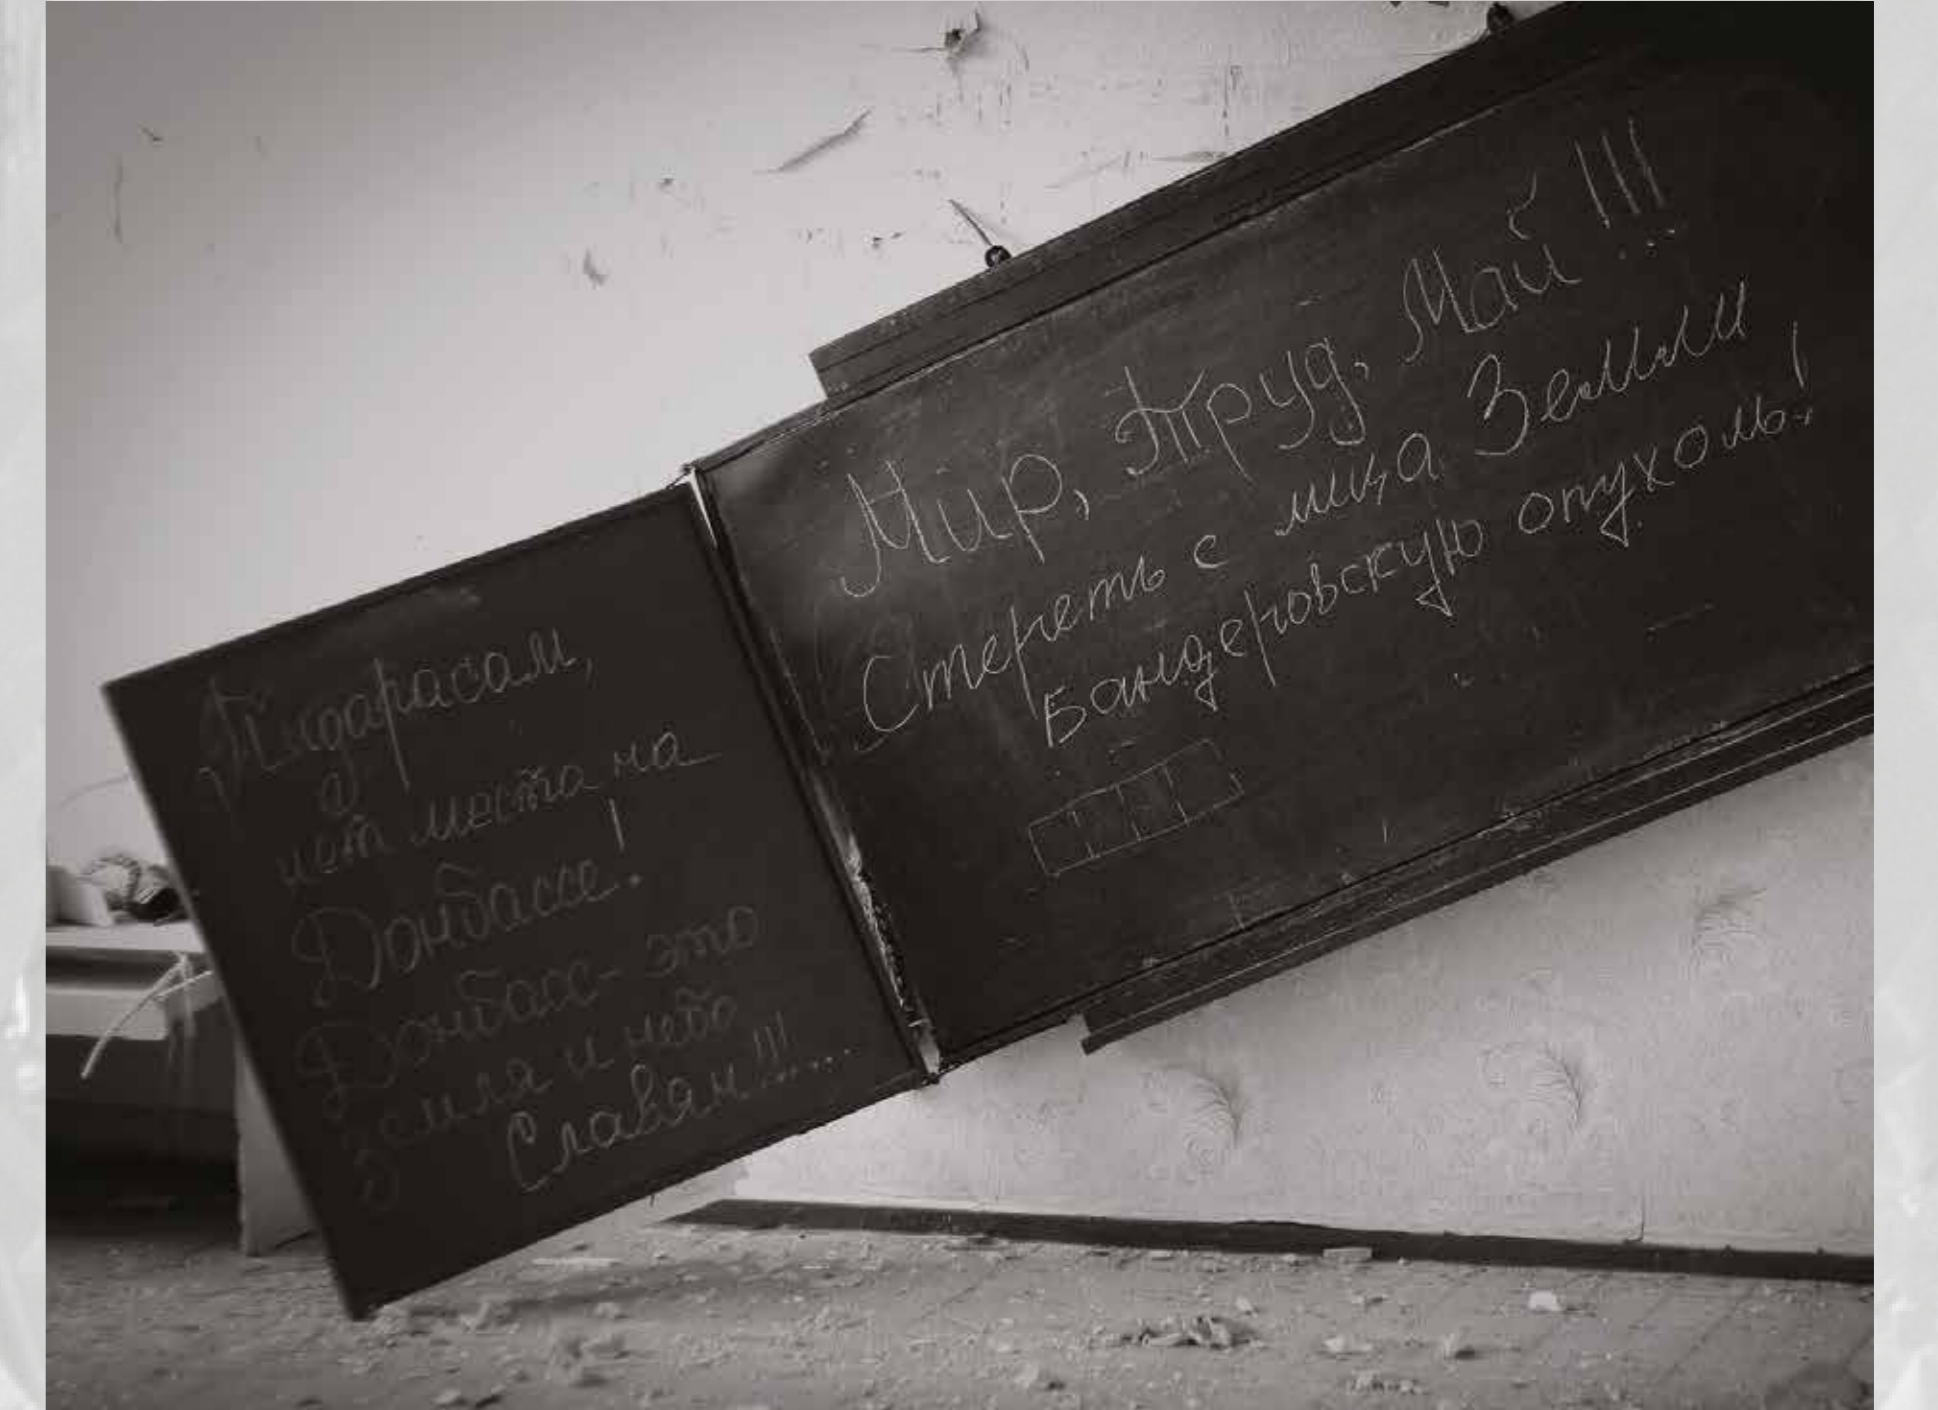 Пидарасам,
нет места на
Донбассе!
Донбасс - это
земля и небо
Славян!!!...
Мир, Труд, Май!!!
Стереть с лица Земли
бандеровскую опухоль!